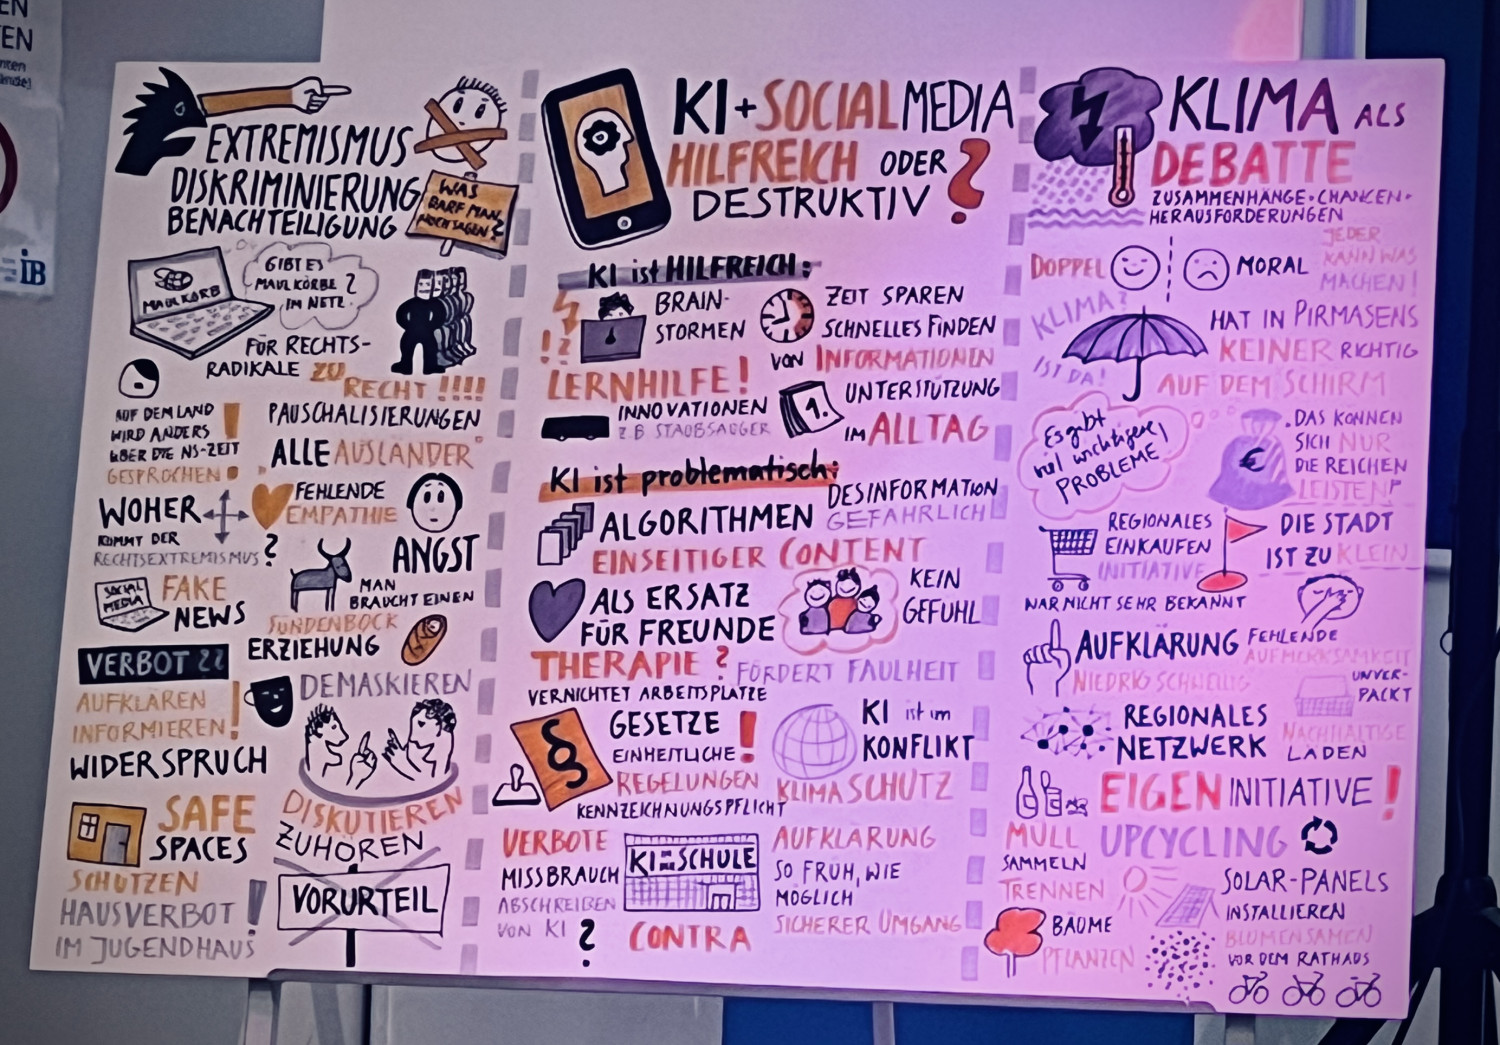 EN
TEN
EXTREMISMUS
DISKRIMINIERUNG
BENACHTEILIGUNG
WAS
DARF MAN
NOCH SAGEN?
MAULKORB
GIBT ES
MAULKÖRBE ?
IM NETZ
FÜR RECHTS-
RADIKALE ZU
RECHT !!!!
AUF DEM LAND
WIRD ANDERS
ÜBER DIE NS-ZEIT
GESPROCHEN !
PAUSCHALISIERUNGEN
ALLE AUSLÄNDER"
WOHER
KOMMT DER
RECHTSEXTREMISMUS ?
FEHLENDE
EMPATHIE
ANGST
SOCIAL
MEDIA
FAKE
NEWS
MAN
BRAUCHT EINEN
SÜNDENBOCK
VERBOT ??
ERZIEHUNG
AUFKLÄREN
INFORMIEREN !
DEMASKIEREN
WIDERSPRUCH
DISKUTIEREN
ZUHÖREN
SAFE
SPACES
SCHÜTZEN
HAUSVERBOT !
IM JUGENDHAUS
VORURTEIL
KI + SOCIAL MEDIA
HILFREICH ODER
DESTRUKTIV ?
KI ist HILFREICH:
BRAIN-
STORMEN
ZEIT SPAREN
SCHNELLES FINDEN
VON INFORMATIONEN
LERNHILFE !
INNOVATIONEN
Z.B STAUBSAUGER
1.
UNTERSTÜTZUNG
IM ALLTAG
KI ist problematisch:
ALGORITHMEN
EINSEITIGER CONTENT
DESINFORMATION
GEFÄHRLICH
ALS ERSATZ
FÜR FREUNDE
THERAPIE ?
KEIN
GEFÜHL
FÖRDERT FAULHEIT
VERNICHTET ARBEITSPLÄTZE
§
GESETZE !
EINHEITLICHE
REGELUNGEN
KENNZEICHNUNGSPFLICHT
KI ist im
KONFLIKT
KLIMASCHUTZ
VERBOTE
MISSBRAUCH
ABSCHREIBEN
VON KI ?
KI IN DER SCHULE
CONTRA
AUFKLÄRUNG
SO FRÜH, WIE
MÖGLICH
SICHERER UMGANG
KLIMA ALS
DEBATTE
ZUSAMMENHÄNGE · CHANCEN ·
HERAUSFORDERUNGEN
DOPPEL MORAL
JEDER
KANN WAS
MACHEN !
KLIMA?
IST DA!
HAT IN PIRMASENS
KEINER RICHTIG
AUF DEM SCHIRM
Es gibt
viel wichtigere
PROBLEME !
€
„DAS KÖNNEN
SICH NUR
DIE REICHEN
LEISTEN!"
REGIONALES
EINKAUFEN
INITIATIVE
WAR NICHT SEHR BEKANNT
DIE STADT
IST ZU KLEIN
AUFKLÄRUNG
NIEDRIGSCHWELLIG
FEHLENDE
AUFMERKSAMKEIT
REGIONALES
NETZWERK
UNVER-
PACKT
NACHHALTIGE
LÄDEN
EIGENINITIATIVE !
MÜLL
SAMMELN
TRENNEN
UPCYCLING
BÄUME
PFLANZEN
SOLAR-PANELS
INSTALLIEREN
BLUMENSAMEN
VOR DEM RATHAUS
iB